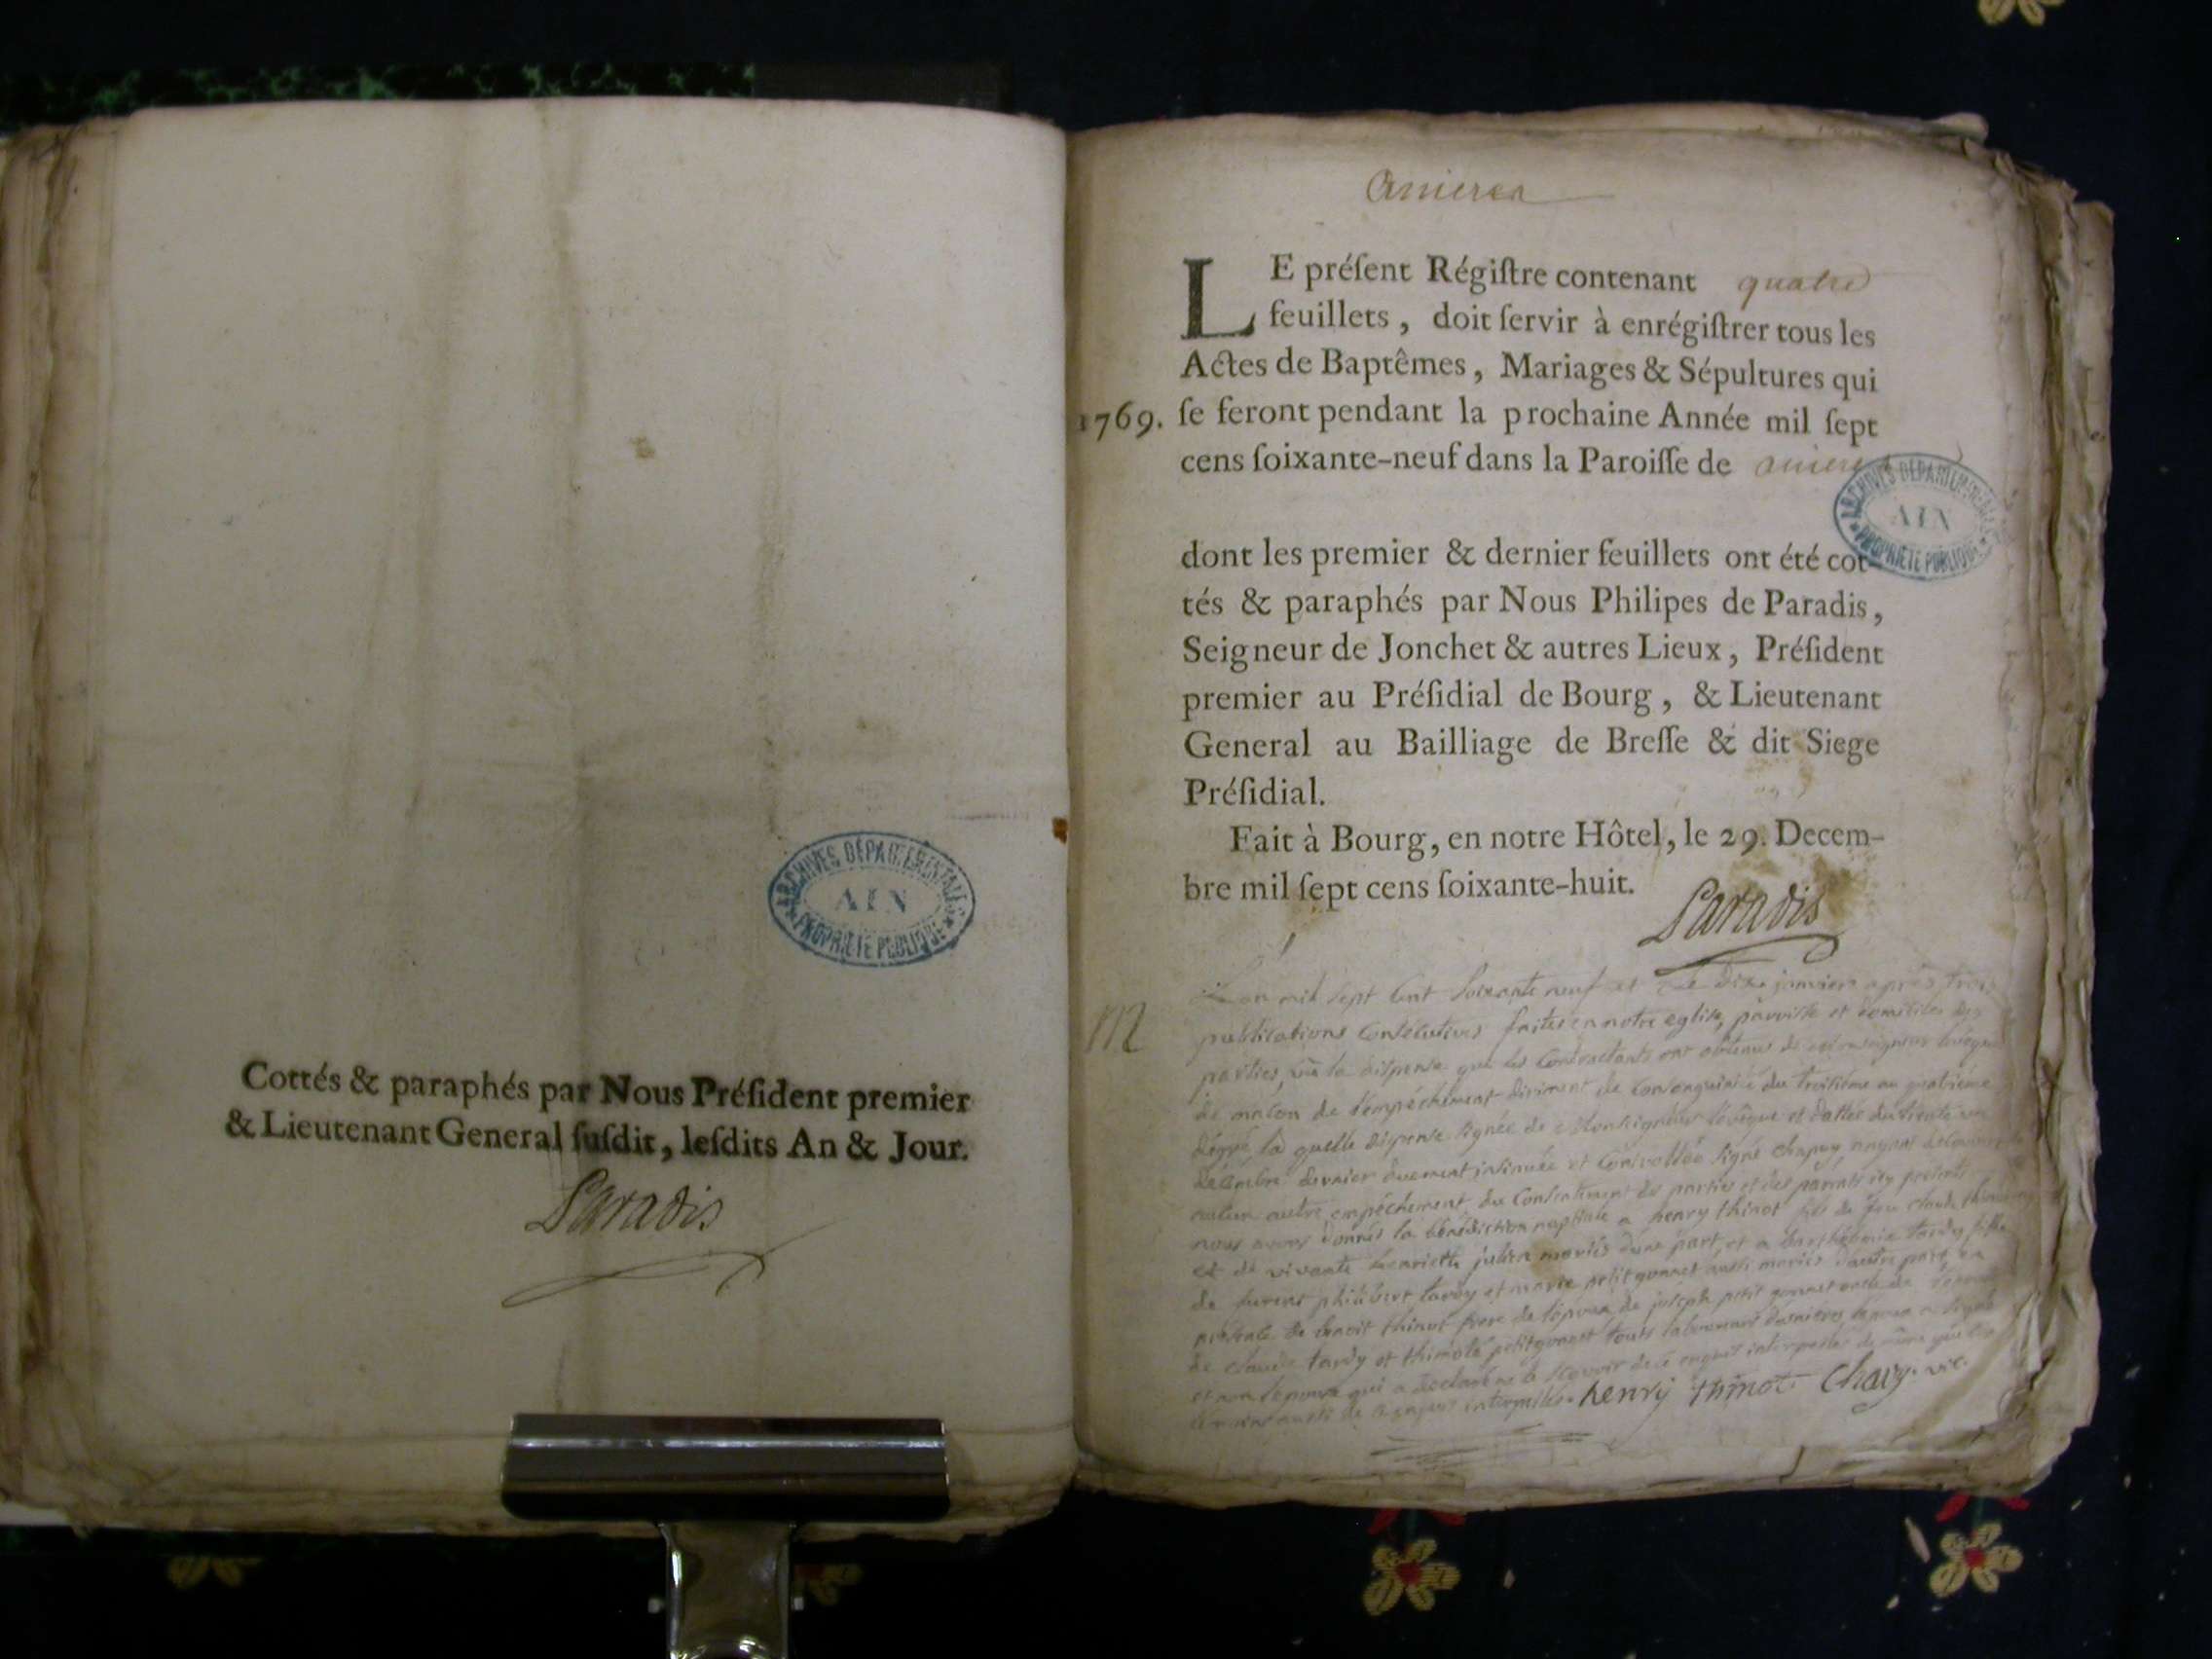 ARCHIVES DÉPARTEMENTALES
AIN
PROPRIÉTÉ PUBLIQUE
Cottés & paraphés par Nous Préſident premier
& Lieutenant General ſuſdit, leſdits An & Jour.
Paradis
LE préſent Régiſtre contenant quatre
feuillets, doit ſervir à enrégiſtrer tous les
Actes de Baptêmes, Mariages & Sépultures qui
1769. ſe feront pendant la prochaine Année mil ſept
cens ſoixante-neuf dans la Paroiſſe de
ARCHIVES DÉPARTEMENTALES
AIN
PROPRIÉTÉ PUBLIQUE
dont les premier & dernier feuillets ont été cot-
tés & paraphés par Nous Philipes de Paradis,
Seigneur de Jonchet & autres Lieux, Préſident
premier au Préſidial de Bourg, & Lieutenant
General au Bailliage de Breſſe & dit Siege
Préſidial.
Fait à Bourg, en notre Hôtel, le 29. Decem-
bre mil ſept cens ſoixante-huit.
Paradis
L'an mil sept cent soixante neuf et le dix janvier après trois
M publications consécutives faites en notre eglise, parroisse et domiciles des
parties, vû la dispense que les contractants ont obtenue de
de macon de l'empêchement dirimant de consanguinité du troisième au quatrième
la quelle dispense signée de Monseigneur l'évêque et dattée du trente un
décembre dernier duement insinuée et controllée signé chapuy
aucun autre empêchement, du consentement des parties et des parents icy presents
nous avons donnés la bénédiction nuptiale a henry thinot fils de feu claude thinot
et de vivante henriette julien mariés d'une part, et a barthélemie tardy fille
de philibert tardy et marie petitgonnet aussi mariés d'autre part, en
présence de benoit thinot frere de l'époux, de joseph petit gonnet oncle de
de claude tardy et thimoté petitgonnet touts laboureurs
et non l'epouse qui a déclaré ne le scavoir de ce enquis interpellés de même que les
témoins aussi de ce enquis interpellés. henry thinot Chavy. vic.